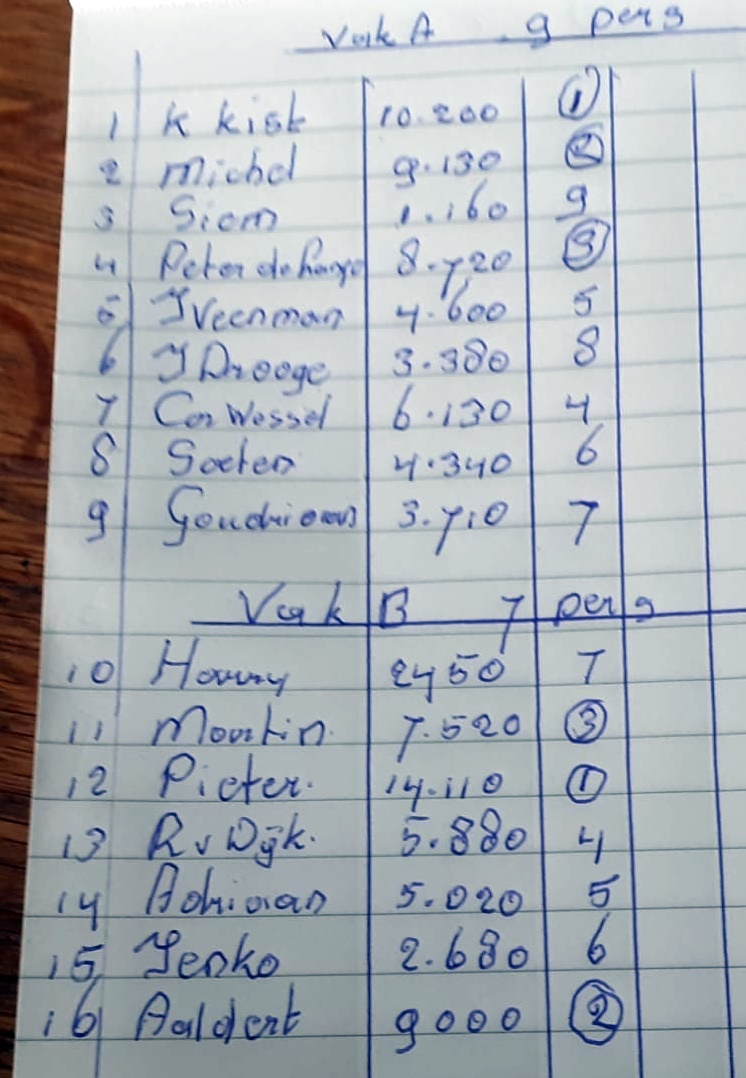 Vak A 9 pers
1 K Kisk 10.200 1
2 Michel 9.130 2
3 Siem 1.160 9
4 Peter de 8.720 3
5 J Veenman 4.600 5
6 J Drooge 3.380 8
7 Cor Wessel 6.130 4
8 Soeten 4.340 6
9 Goudriaan 3.710 7
Vak B 7 pers
10 Harry 2450 7
11 Martin. 7.520 3
12 Pieter. 14.110 1
13 R v Dijk. 5.880 4
14 Adriaan 5.020 5
15 Jenko 2.680 6
16 Aaldert 9000 2